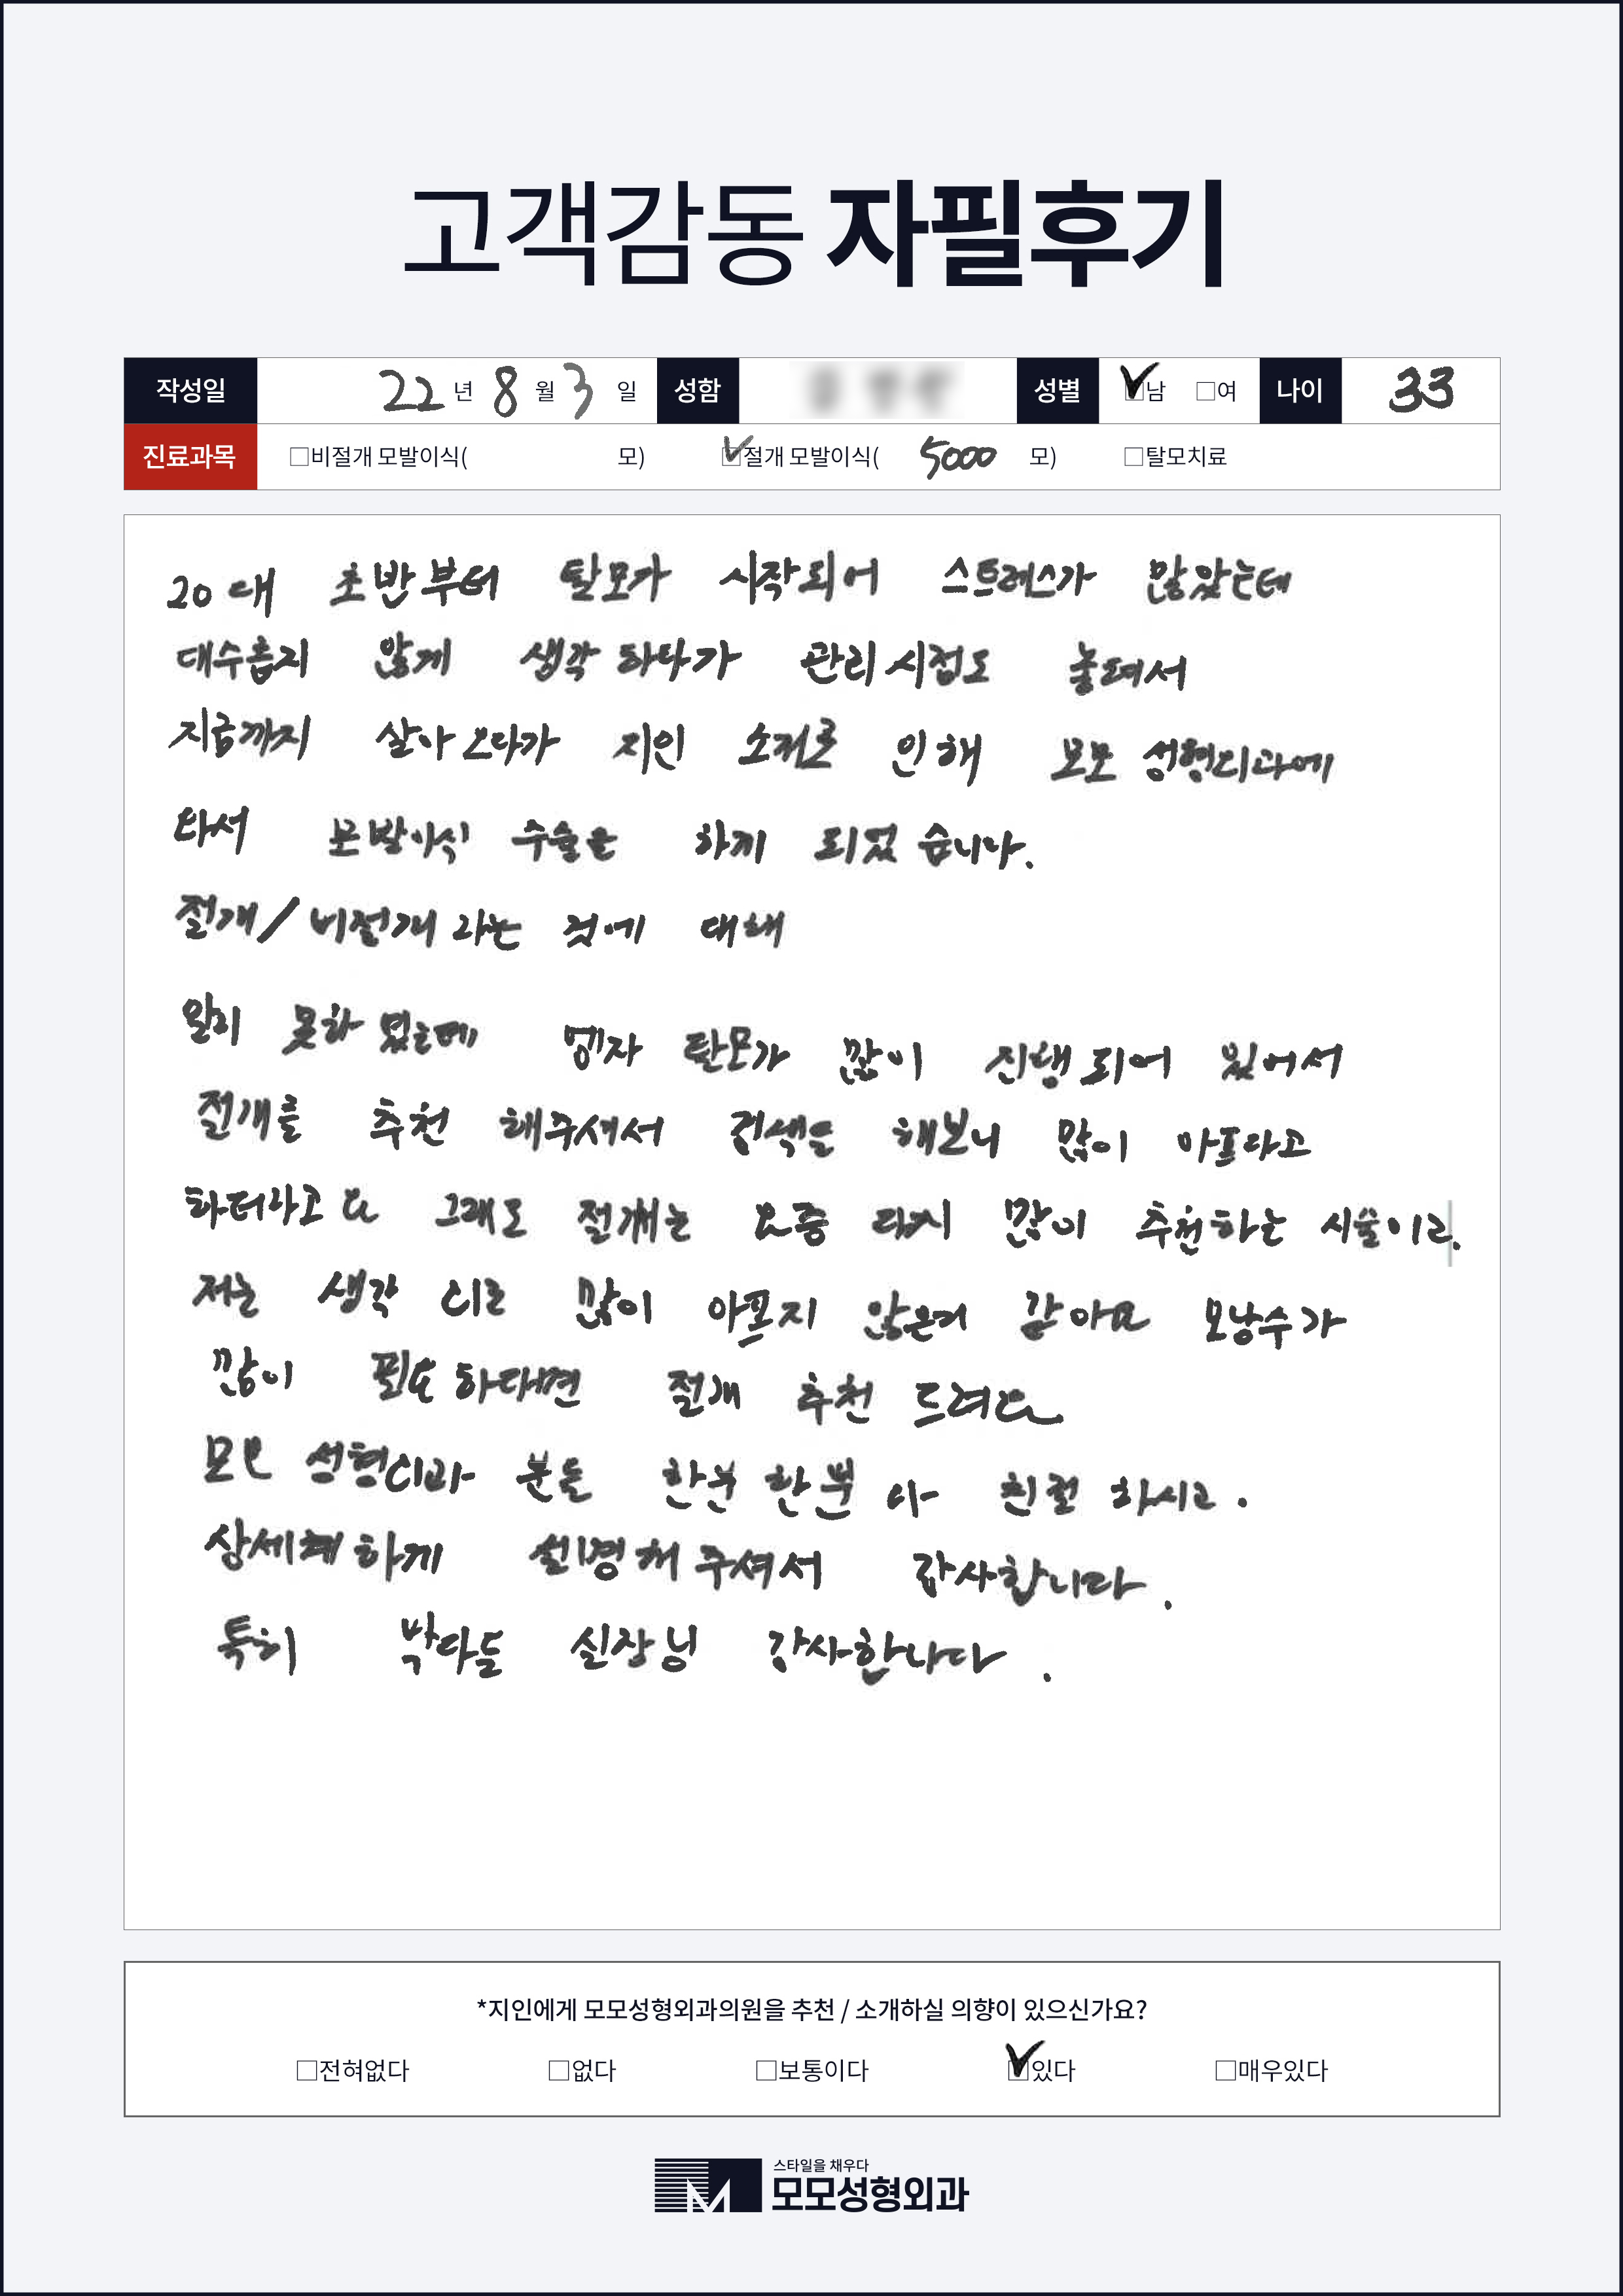 고객감동 자필후기
작성일 22 년 8 월 3 일 성함 성별 ☑남 □여 나이 33
진료과목 □비절개 모발이식( 모) ☑절개 모발이식( 5000 모) □탈모치료
20대 초반부터 탈모가 시작되어 스트레스가 많았는데
대수롭지 않게 생각하다가 관리시점도 놓쳐서
지금까지 살아오다가 지인 소개로 인해 모모 성형외과에
와서 모발이식 수술을 하게 되었습니다.
절개/비절개라는 것에 대해
알지 못하였는데 탈모가 많이 진행되어 있어서
절개를 추천 해주셔서 검색을 해보니 많이 아프다고
하더라고요 그래도 절개는 요즘 다시 많이 추천하는 시술이라.
저는 생각 외로 많이 아프지 않은거 같아요 모낭수가
많이 필요하다면 절개 추천 드려요
모모 성형외과 분들 한분 한분 다 친절 하시고.
상세하게 설명해 주셔서 감사합니다.
특히 실장님 감사합니다.
*지인에게 모모성형외과의원을 추천 / 소개하실 의향이 있으신가요?
□전혀없다 □없다 □보통이다 ☑있다 □매우있다
스타일을 채우다
모모성형외과